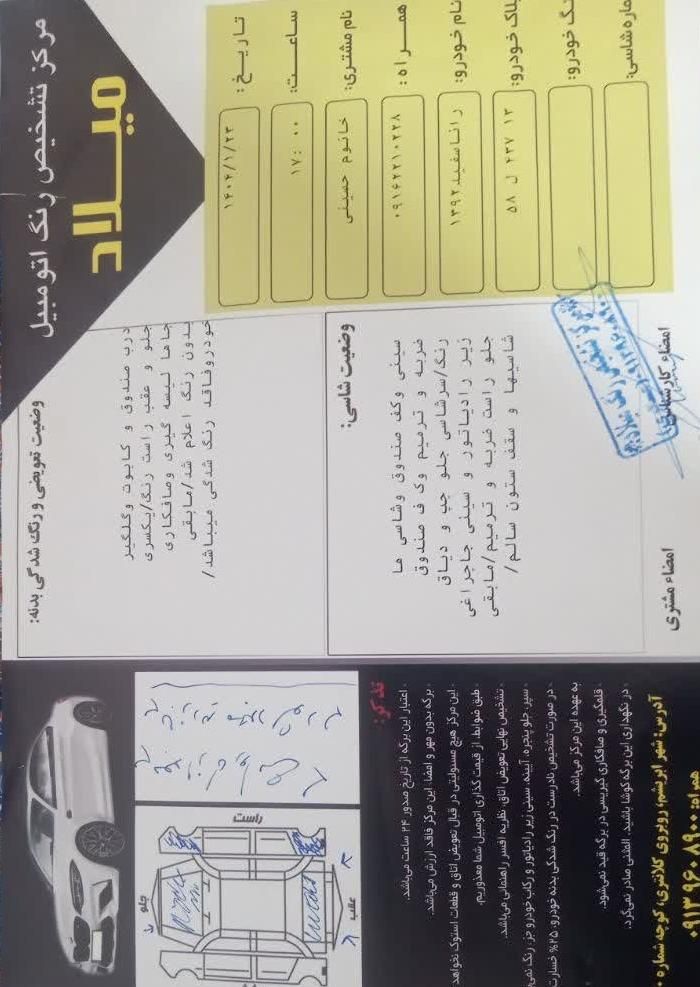 مرکز تشخیص رنگ اتومبیل
میلاد
تاریخ: ۱۴۰۴/۱/۲۳
ساعت: ۱۷:۰۰
نام مشتری: خانوم حسینی
همراه: ۰۹۱۶۲۲۱۰۲۲۸
نام خودرو: رانا سفید ۱۳۹۲
پلاک خودرو: ۵۸ ل ۴۳۷ ۱۳
رنگ خودرو:
شماره شاسی:
وضعیت تعویضی و رنگ شدگی بدنه:
درب صندوق و کاپوت وگلگیر
جلو و عقب راست رنگ/یکسری
جاها لیسه گیری وصافکاری
بدون رنگ اعلام شد/مابقی
خودروفاقد رنگ شدگی میباشد/
وضعیت شاسی:
سینی وکف صندوق وشاسی ها
ضربه و ترمیم وکف صندوق
رنگ/سرشاسی جلو چپ و دیاق
زیر رادیاتور و سینی جاچراغی
جلو راست ضربه و ترمیم/مابقی
شاسیها و سقف ستون سالم/
امضاء کارشناس
امضاء مشتری
راست
جلو
عقب
تذکر:
اعتبار این برگه از تاریخ صدور ۲۴ ساعت می‌باشد.
برگه بدون مهر و امضا این مرکز فاقد ارزش می‌باشد.
این مرکز هیچ مسئولیتی در قبال تعویض اتاق و قطعات استوک نخواهد
طبق ضوابط، از قیمت گذاری اتومبیل شما معذوریم.
تشخیص نهایی تعویض اتاق، نظریه افسر راهنمائی می‌باشد.
سپر، جلو پنجره، آیینه، سینی زیر رادیاتور و رکاب خودرو جز، رنگ نمی
در صورت تشخیص نادرست در رنگ شدگی بدنه خودرو، ۲۵% خسارت
به عهده این مرکز می‌باشد.
قلمگیری و صافکاری دیریسی در برگه قید نمی‌شود.
در نگهداری این برگه کوشا باشید. المثنی صادر نمی‌گردد.
آدرس: شهر ابریشم، روبروی کلانتری، کوچه شماره
همراه: ۰۹۱۳۹۶۰۸۹۰۰